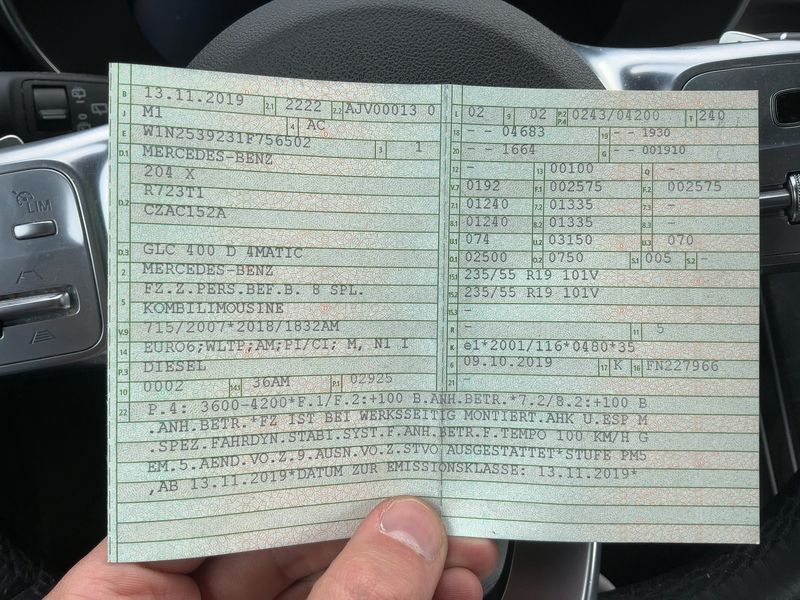 B 13.11.2019 2.1 2222 2.2 AJV00013 0
J M1 4 AC
E W1N2539231F756502 3 1
D.1 MERCEDES-BENZ
204 X
D.2 R723T1
CZAC152A
D.3 GLC 400 D 4MATIC
2 MERCEDES-BENZ
5 FZ.Z.PERS.BEF.B. 8 SPL.
KOMBILIMOUSINE
V.9 715/2007*2018/1832AM
14 EURO6;WLTP;AM;PI/CI; M, N1 I
P.3 DIESEL
10 0002 14.1 36AM P.1 02925
L 02 9 02 P.2 P.4 0243/04200 T 240
18 - - 04683 19 - - 1930
20 - - 1664 G - - 001910
12 - 13 00100 Q -
V.7 0192 F.1 002575 F.2 002575
7.1 01240 7.2 01335 7.3 -
8.1 01240 8.2 01335 8.3 -
U.1 074 U.2 03150 U.3 070
O.1 02500 O.2 0750 S.1 005 S.2 -
15.1 235/55 R19 101V
15.2 235/55 R19 101V
15.3 -
R - 11 5
K e1*2001/116*0480*35
6 09.10.2019 17 K 16 FN227966
21 -
22 P.4: 3600-4200*F.1/F.2:+100 B.ANH.BETR.*7.2/8.2:+100 B
.ANH.BETR.*FZ IST BEI WERKSSEITIG MONTIERT.AHK U.ESP M
.SPEZ.FAHRDYN.STABI.SYST.F.ANH.BETR.F.TEMPO 100 KM/H G
EM.5.AEND.VO.Z.9.AUSN.VO.Z.STVO AUSGESTATTET*STUFE PM5
,AB 13.11.2019*DATUM ZUR EMISSIONSKLASSE: 13.11.2019*
LIM